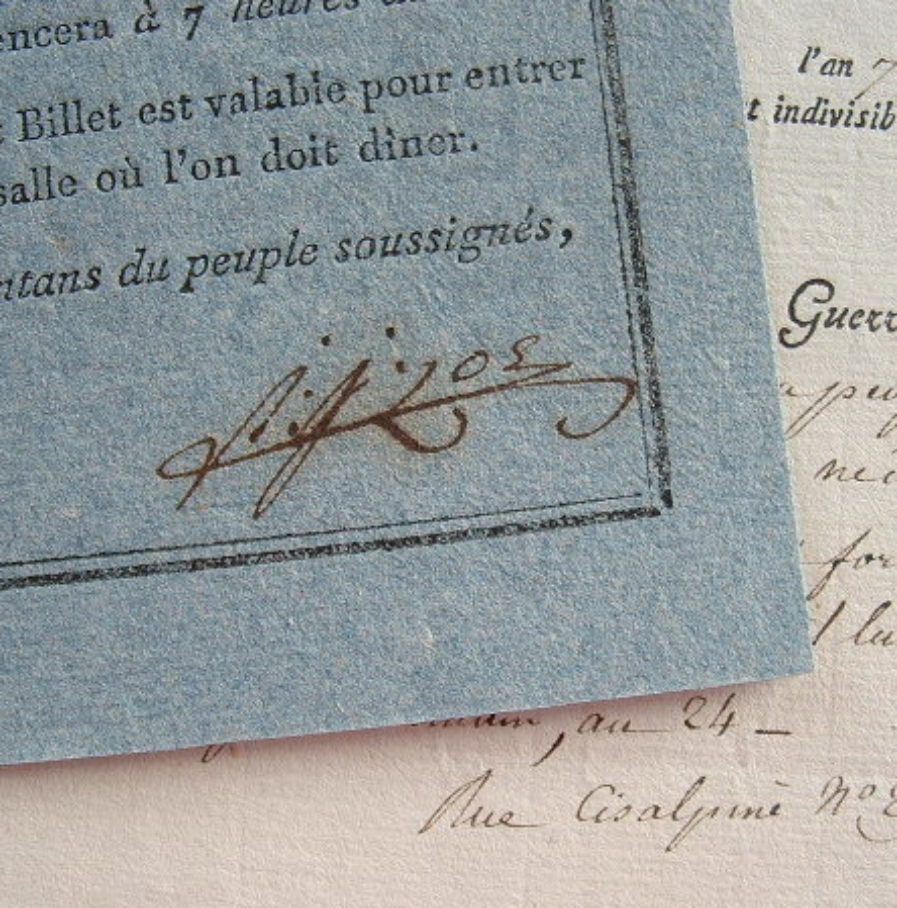 encera à 7 heures
Billet est valable pour entrer
salle où l'on doit dîner.
ntans du peuple soussignés,
l'an 7
t indivisib
Guerr
for
lu
, au 24 -
Rue Cisalpine N°